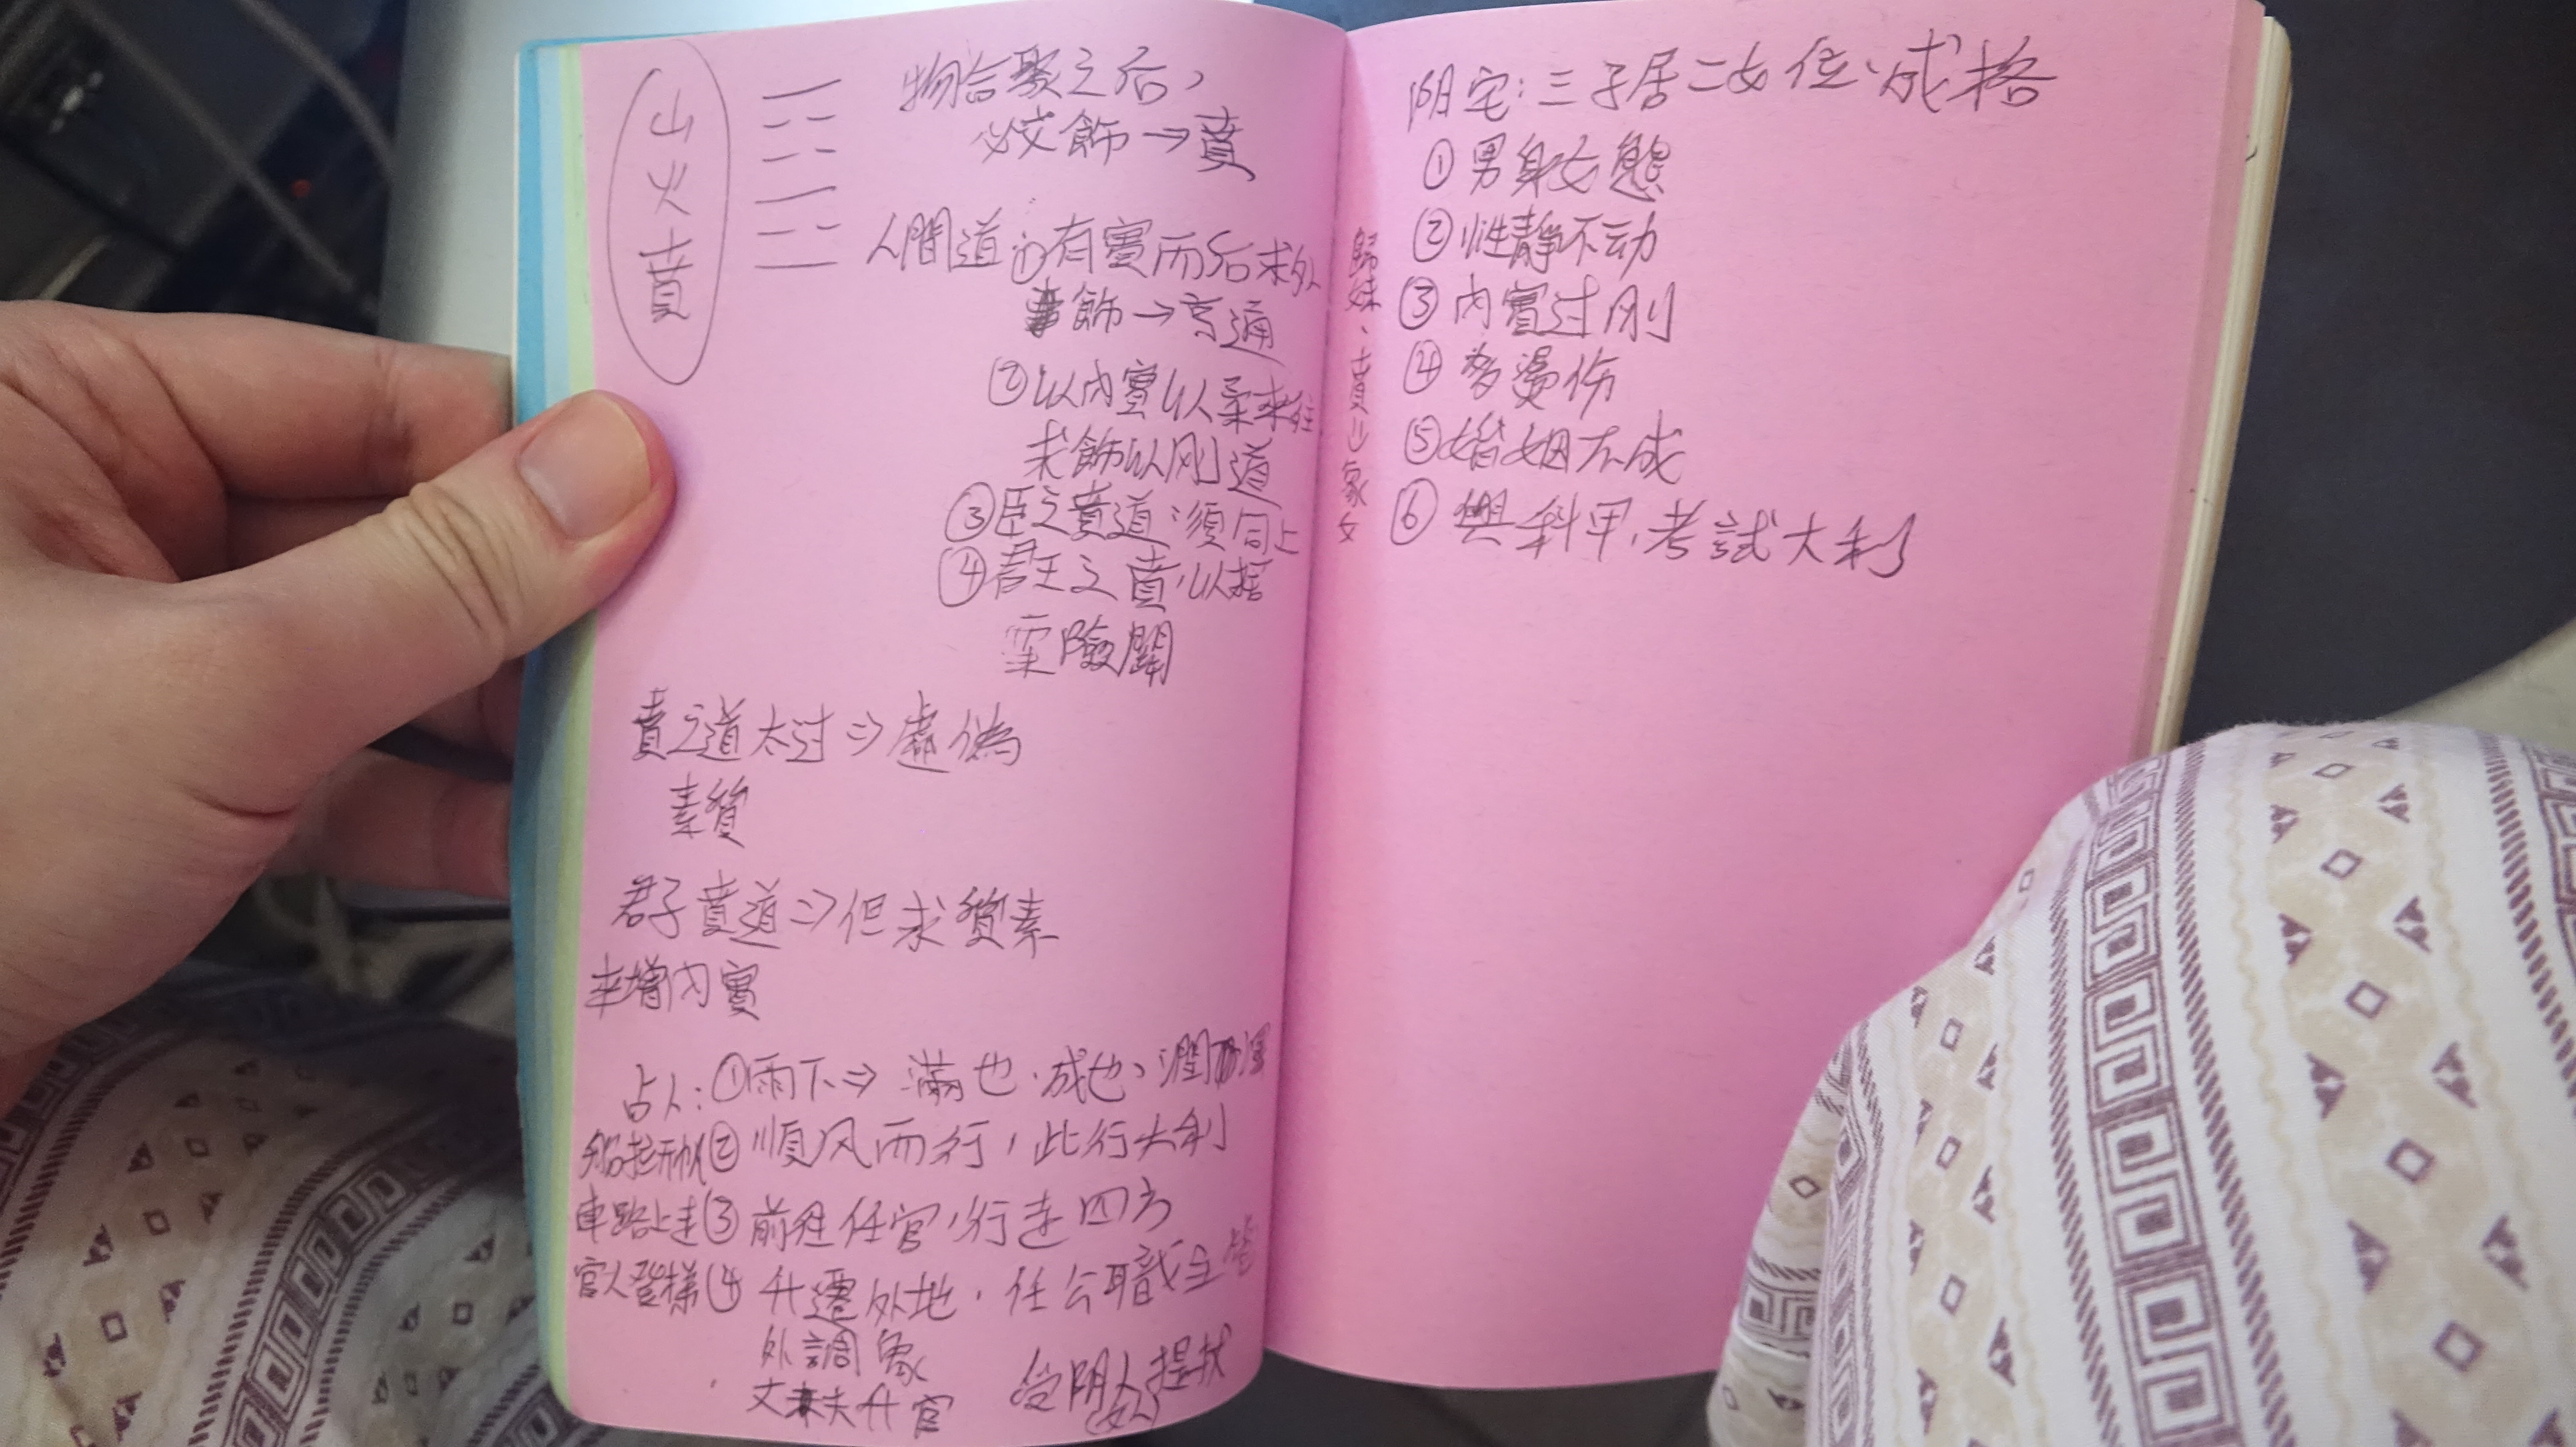 山火賁
物合聚之后,
必文飾→賁
人間道 ①有實而后求外
飾→亨通
②以內實以柔來往
求飾以刚道
③臣之賁道:須同上
④君王之賁,以接
險關
賁之道太过⇒虛偽
素質
君子賁道⇒但求質素
來增內實
占人:①雨下⇒滿也.成也、潤
船挂开帆②順风而行,此行大利
車路上走③前往任官,行走四方
官人登梯④升遷外地.任公職主管
外調象
丈夫升官
受阴人提拔
(女人)
阴宅:三子居二女位、成格
①男身女態
②性靜不动
③內實过刚
④多燙伤
⑤婚姻不成
⑥與科甲,考試大利
歸妹、賁⇒象女